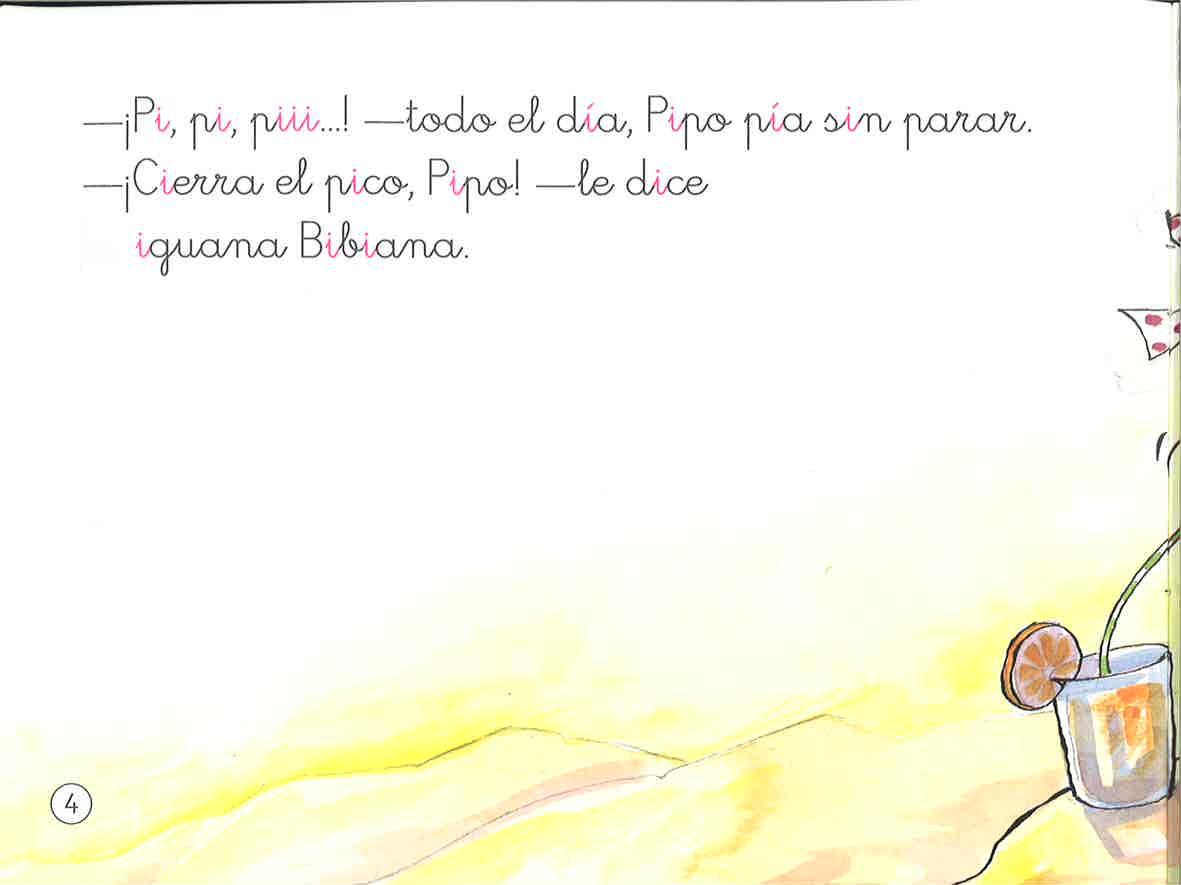 —¡Pi, pi, piii...! —todo el día, Pipo pía sin parar.
—¡Cierra el pico, Pipo! —le dice
iguana Bibiana.
4